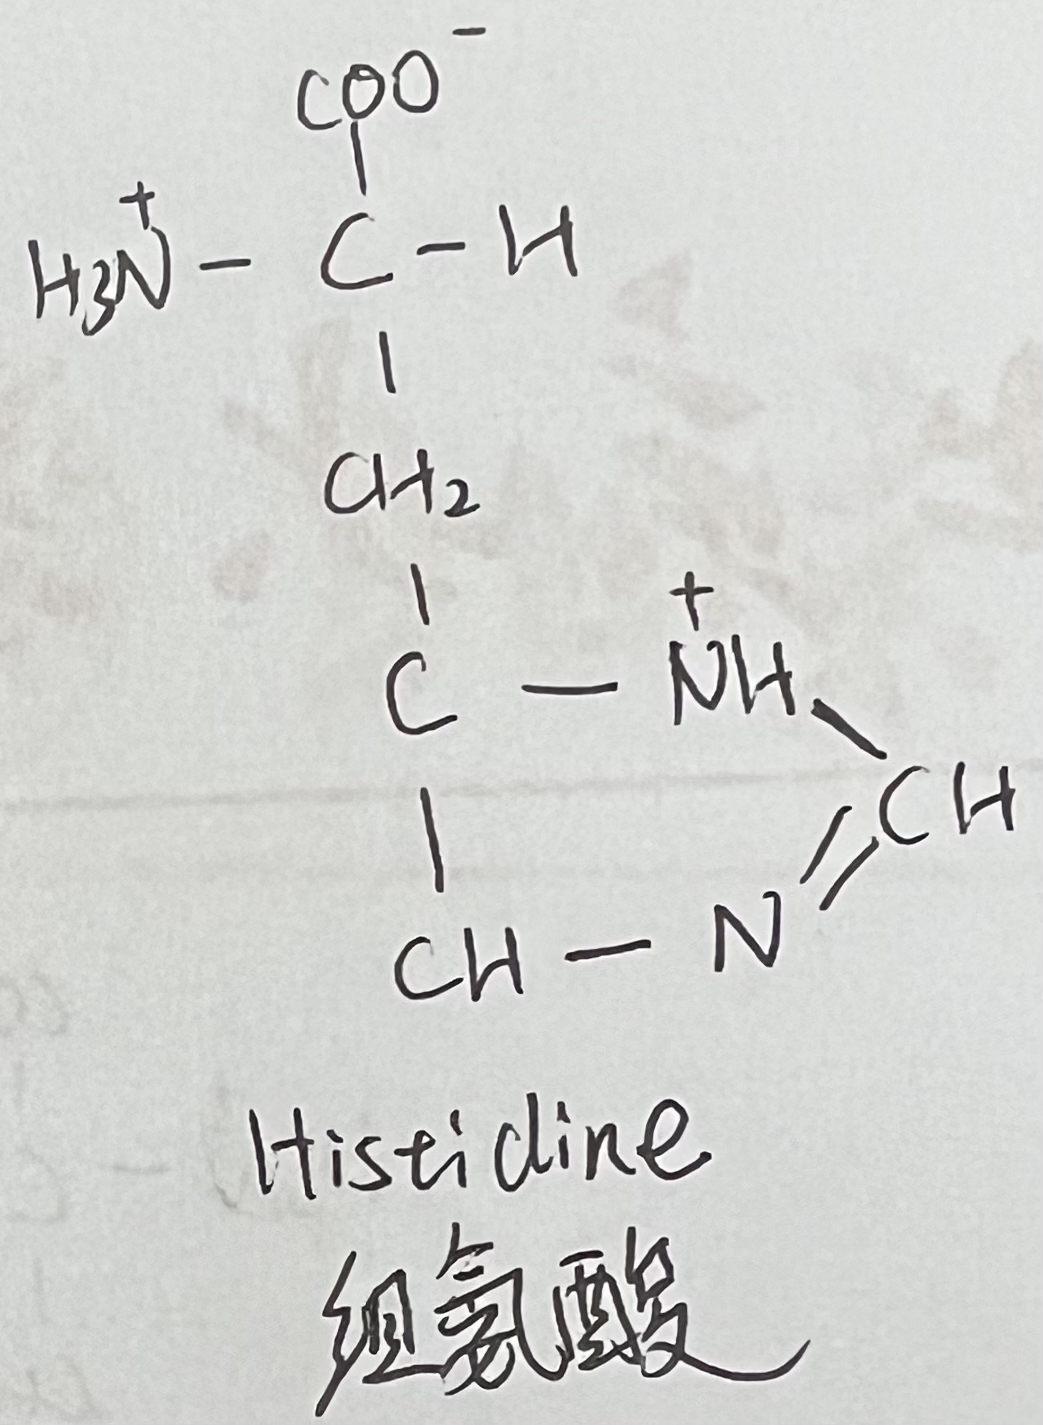 COO⁻
H₃N⁺ - C - H
CH₂
C - N⁺H
CH
CH - N
Histidine
组氨酸